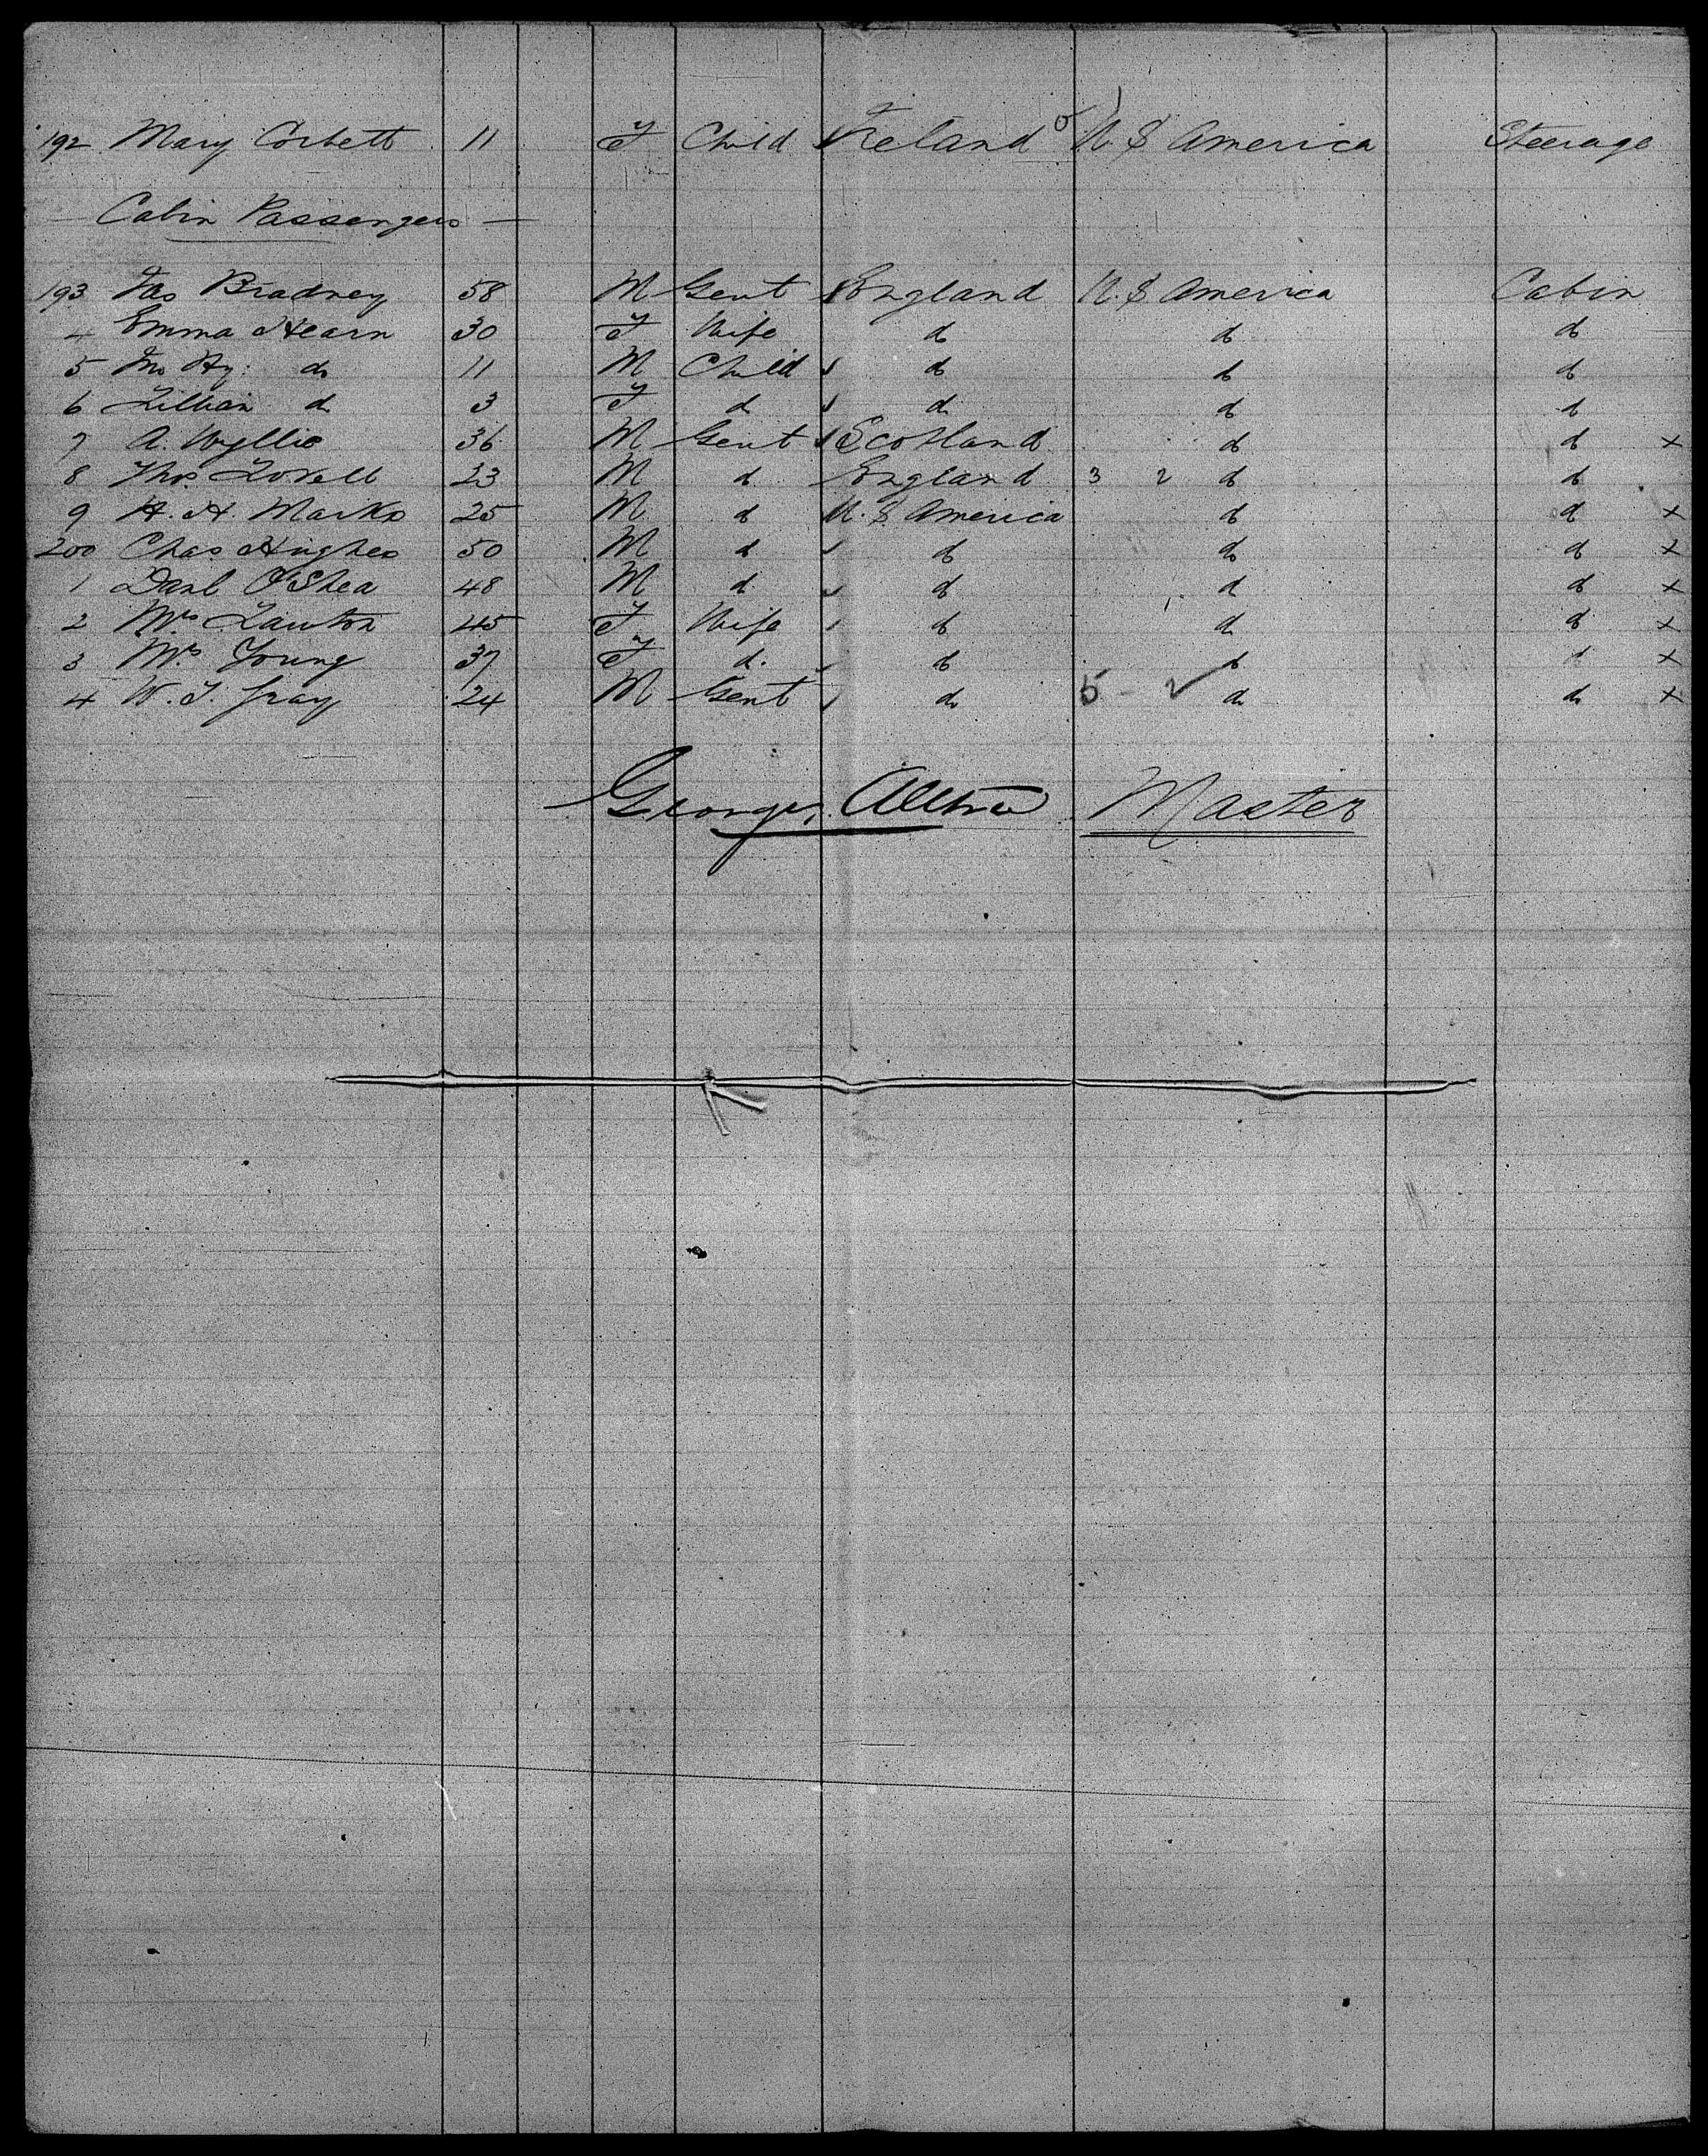 192 Mary Corbett 11 F Child Ireland U S America Steerage
Cabin Passengers
193 Jas Bradney 58 M Gent England U. S America Cabin
4 Emma Hearn 30 F Wife do do do
5 Jno Hy: do 11 M Child do do do
6 Lillian do 3 F do do do do
7 A. Wyllie 36 M Gent Scotland do do x
8 Thos Lovell 23 M do England 3 2 do do
9 H. H. Marks 25 M do U. S America do do x
200 Chas Hughes 50 M do do do do x
1 Danl O'Shea 48 M do do do do x
2 Mrs Lawton 45 F Wife do do do x
3 Mrs Young 37 F do do do do x
4 W. J. Gray 24 M Gent do 5 - 2 do do x
George Master